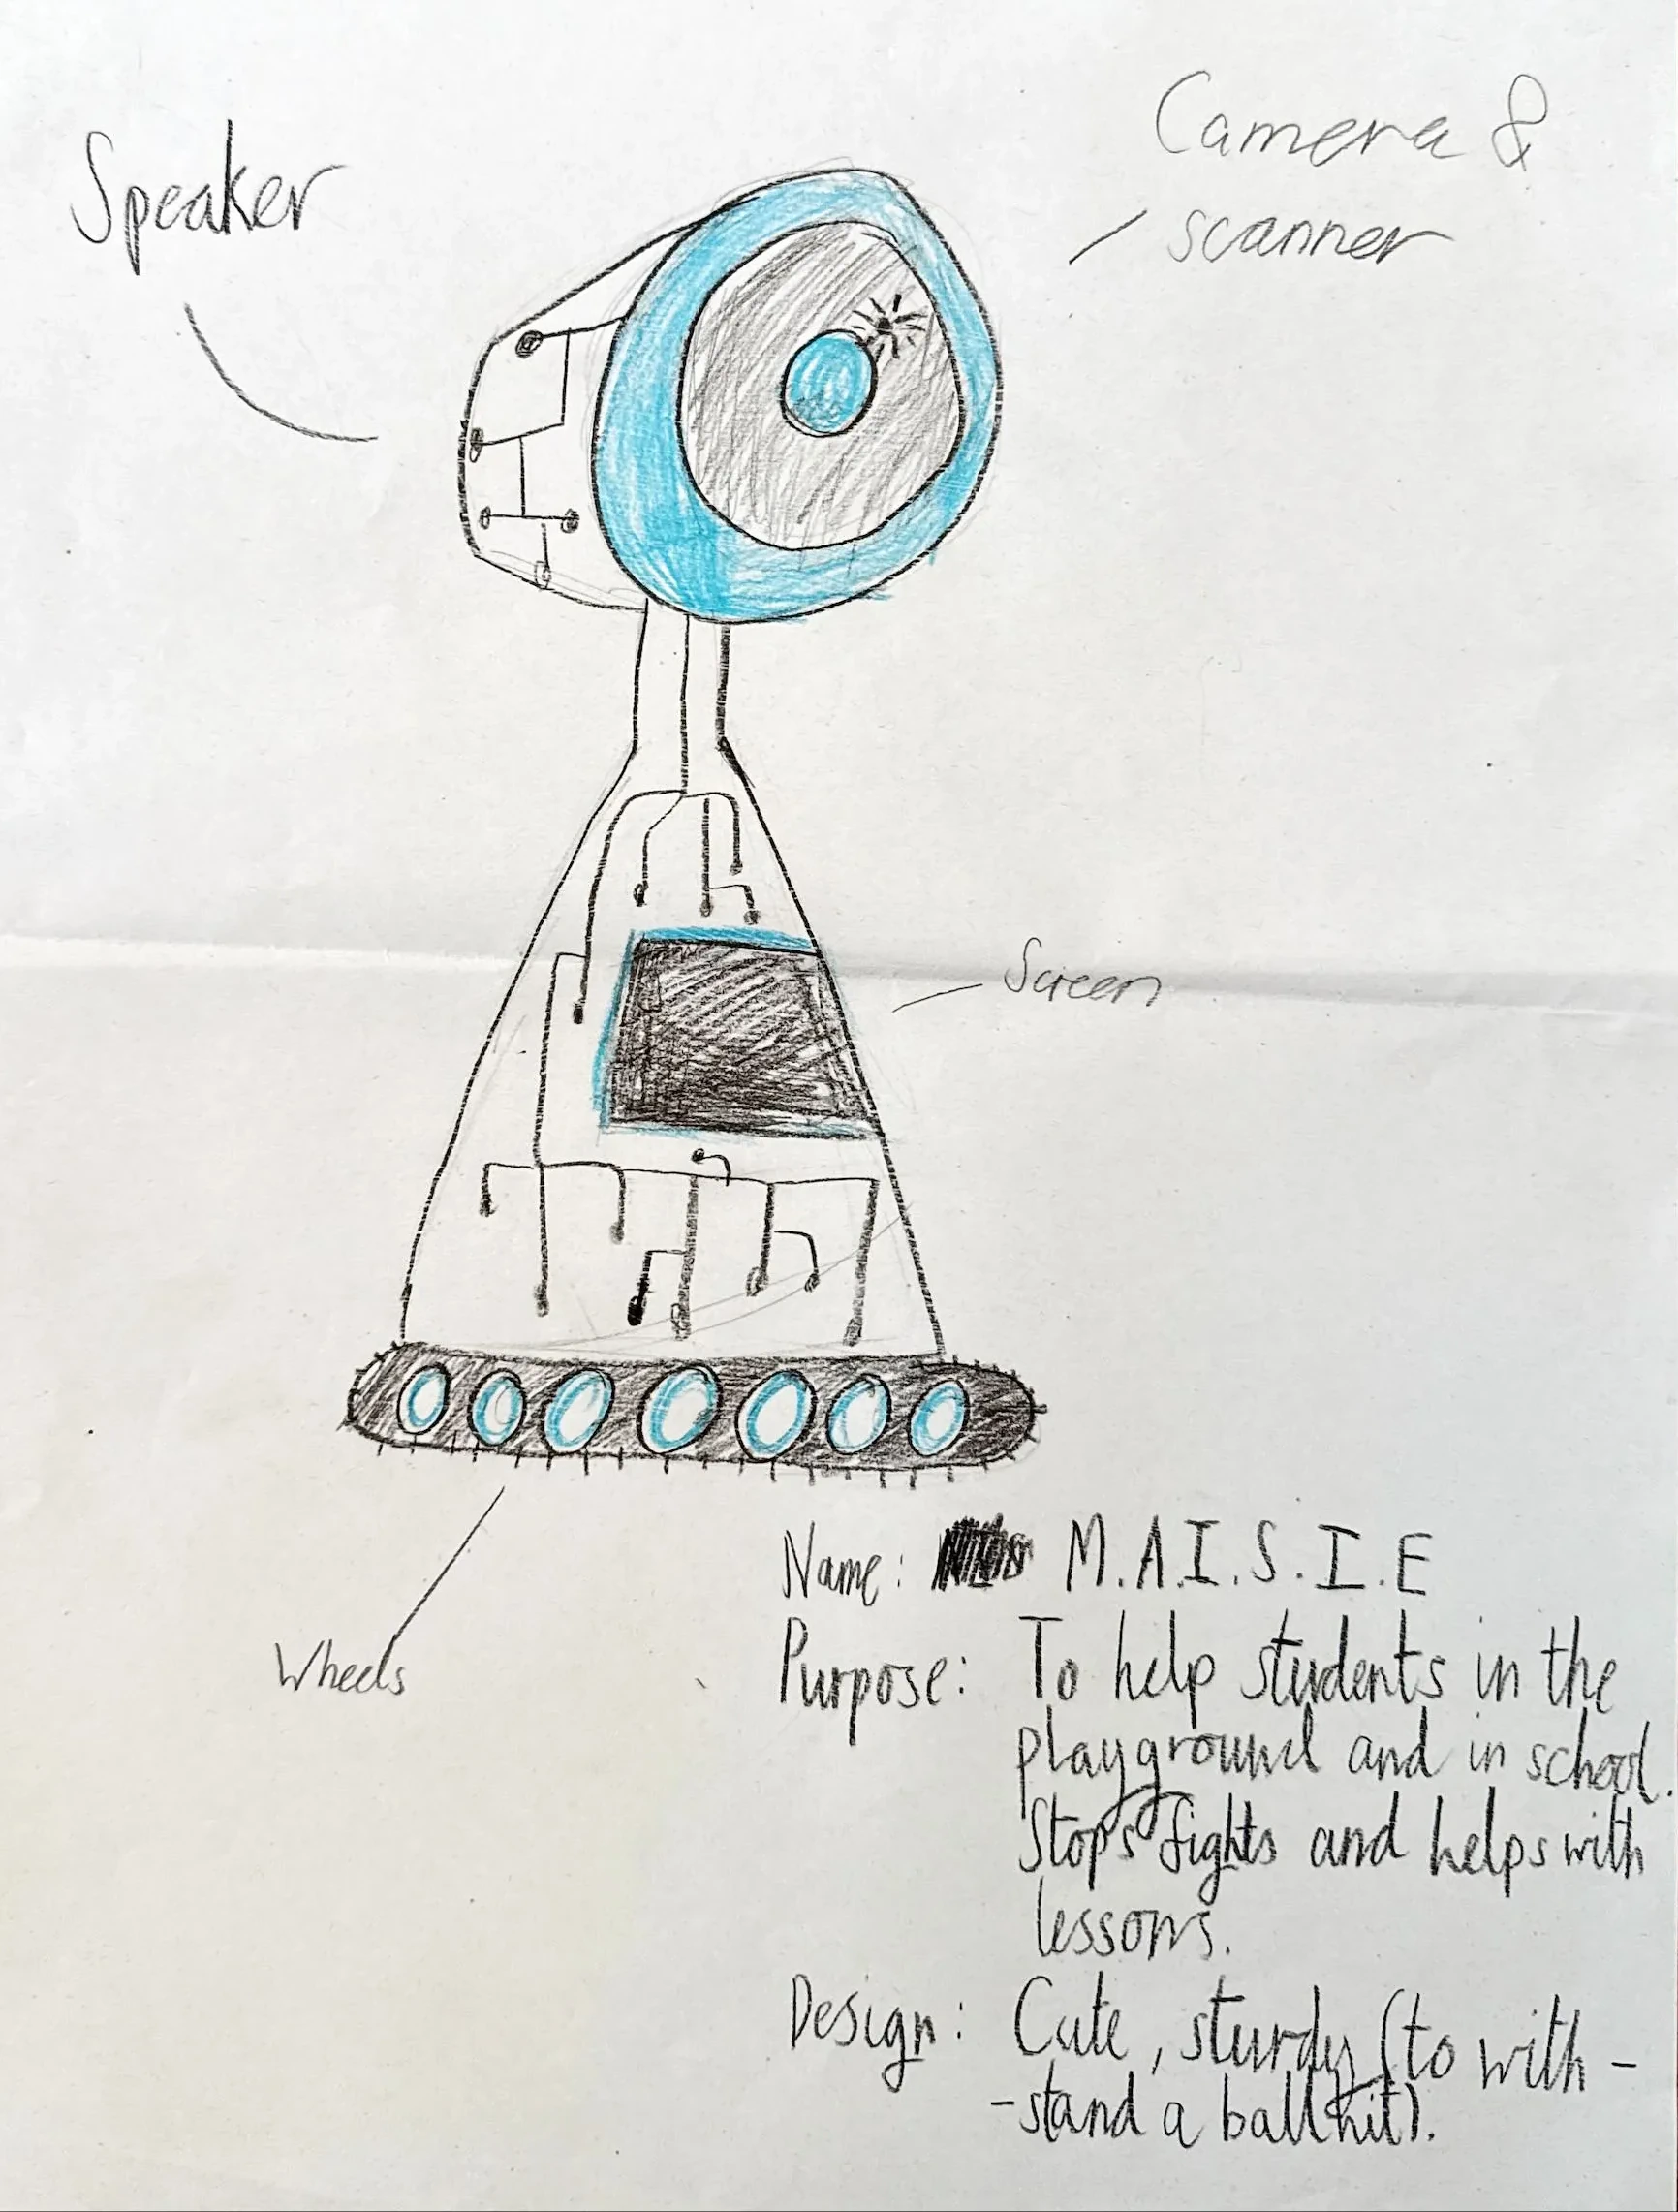 Speaker
Camera &
scanner
Screen
Wheels
Name: M.A.I.S.I.E
Purpose: To help students in the
playground and in school.
Stops fights and helps with
lessons.
Design: Cute, sturdy (to with-
-stand a ball hit).